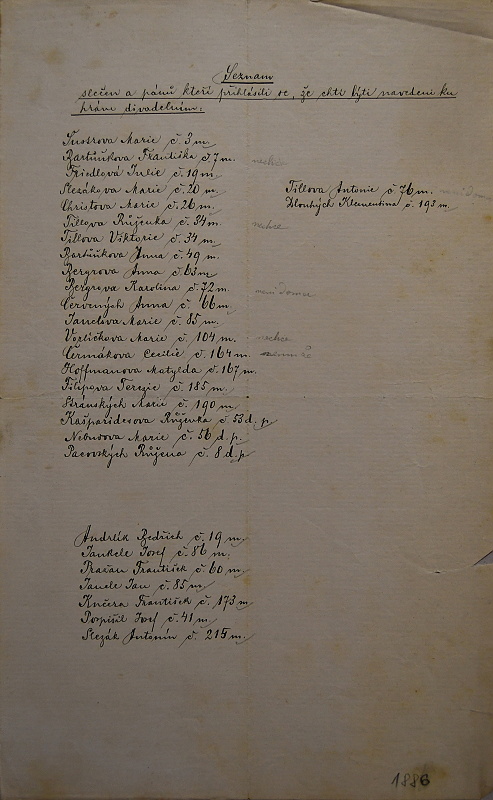 Seznam
slečen a pánů kteří přihlásili se, že chtí býti navedeni ku
hrám divadelním:
Marie č. 3 m.
Bartůňkova Františka č. 7 m. neschce
Friedlová Julie č. 19 m.
Slezákova Marie č. 20 m.
Christova Marie č. 26 m.
Tillova Růženka č. 34 m. nechce
Tillova Viktorie č. 34 m.
Bartůňkova Anna č. 49 m.
Bergrova Anna č. 63 m.
Bergrova Karolina č. 72 m. není doma
Červených Anna č. 66 m.
Janclova Marie č. 85 m.
Voplíčkova Marie č. 104 m. nechce
Čermákova Cecilie č. 164 m.
Hoffmanova Matylda č. 167 m.
Filipova Terezie č. 185 m.
Stránských Marie č. 190 m.
Kašparidesova Růženka č. 53 d. p.
Nebusova Marie č. 56 d. p.
Pacovských Růžena č. 8 d. p.
Tillova Antonie č. 76 m. není doma
Dlouhých Klementina č. 193 m.
Andrlík Bedřich č. 19 m.
Jankele Josef č. 86 m.
František č. 60 m.
Jancle Jan č. 85 m.
Kučera František č. 173 m.
Pospíšil Josef č. 41 m.
Slezák Antonín č. 215 m.
1886